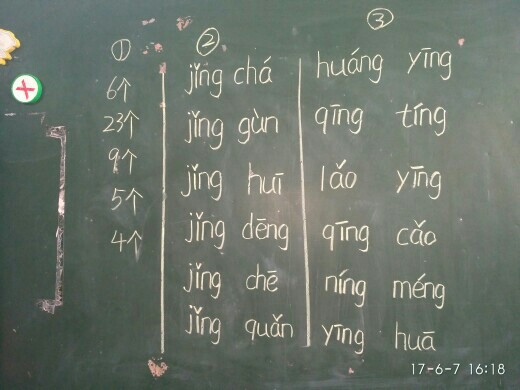 ① ② ③
6个 jǐng chá huáng yīng
23个 jǐng gùn qīng tíng
9个 jǐng huī lǎo yīng
5个 jǐng dēng qīng cǎo
4个 jǐng chē níng méng
jǐng quǎn yīng huā
17-6-7 16:18